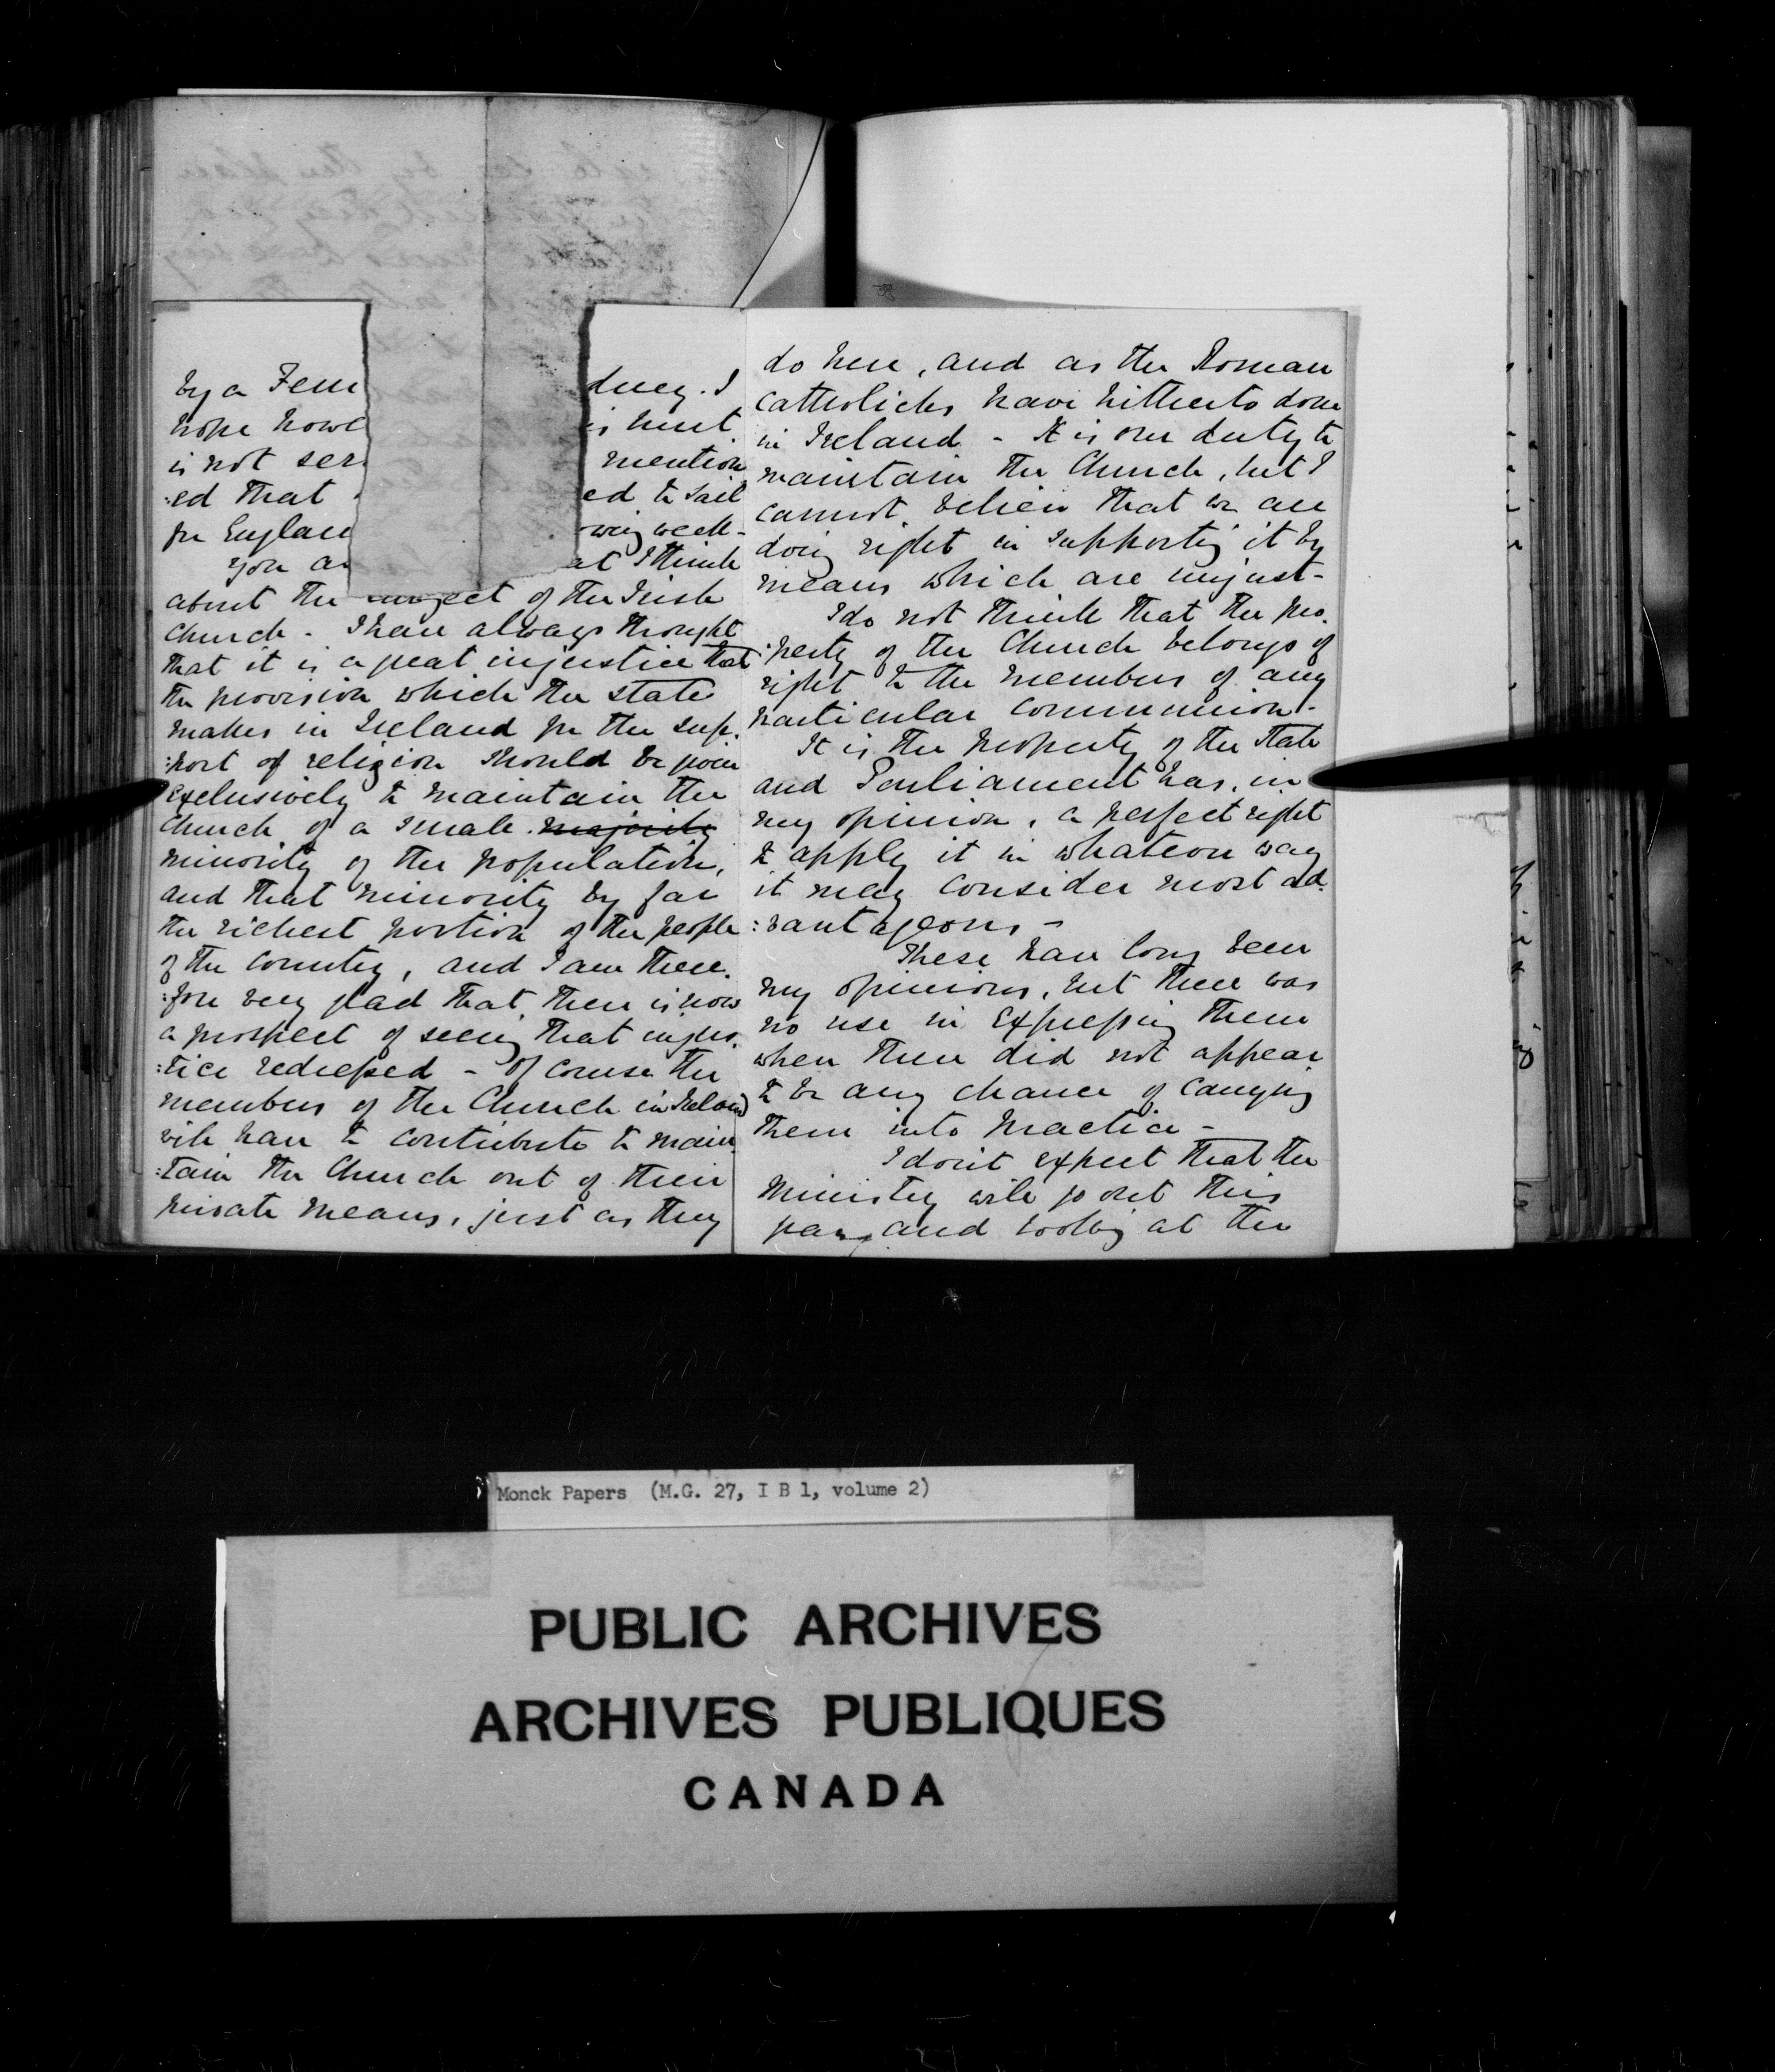 by a Feni
hope howe
is not ser
:ed that
for Englan
You a
dney. I
is hurt
mention
ed to sail
owing week -
at I think
about the subject of the Irish
Church - I have always thought
that it is a great injustice that
the provision which the state
makes in Ireland for the sup.
:port of religion should be given
exclusively to maintain the
Church of a small majority
minority of the population,
and that minority by far
the richest portion of the people
of the country, and I am there.
:fore very glad that there is now
a prospect of seeing that injus.
:tice redressed - Of course the
members of the Church in Ireland
will have to contribute to main.
:tain the Church out of their
private means, just as they
do here, and as the Roman
Catholicks have hitherto done
in Ireland - It is our duty to
maintain the Church, but I
cannot believe that we are
doing right in supporting it by
means which are unjust -
I do not think that the pro.
:perty of the Church belongs of
right to the members of any
particular communion -
It is the property of the State
and Parliament has, in
my opinion, a perfect right
to apply it in whatever way
it may consider most ad.
:vantageous -
These have long been
my opinions, but there was
no use in expressing them
when there did not appear
to be any chance of carrying
them into practice -
I don't expect that the
Ministry will go out this
year, and looking at the
Monck Papers (M.G. 27, I B 1, volume 2)
PUBLIC ARCHIVES
ARCHIVES PUBLIQUES
CANADA